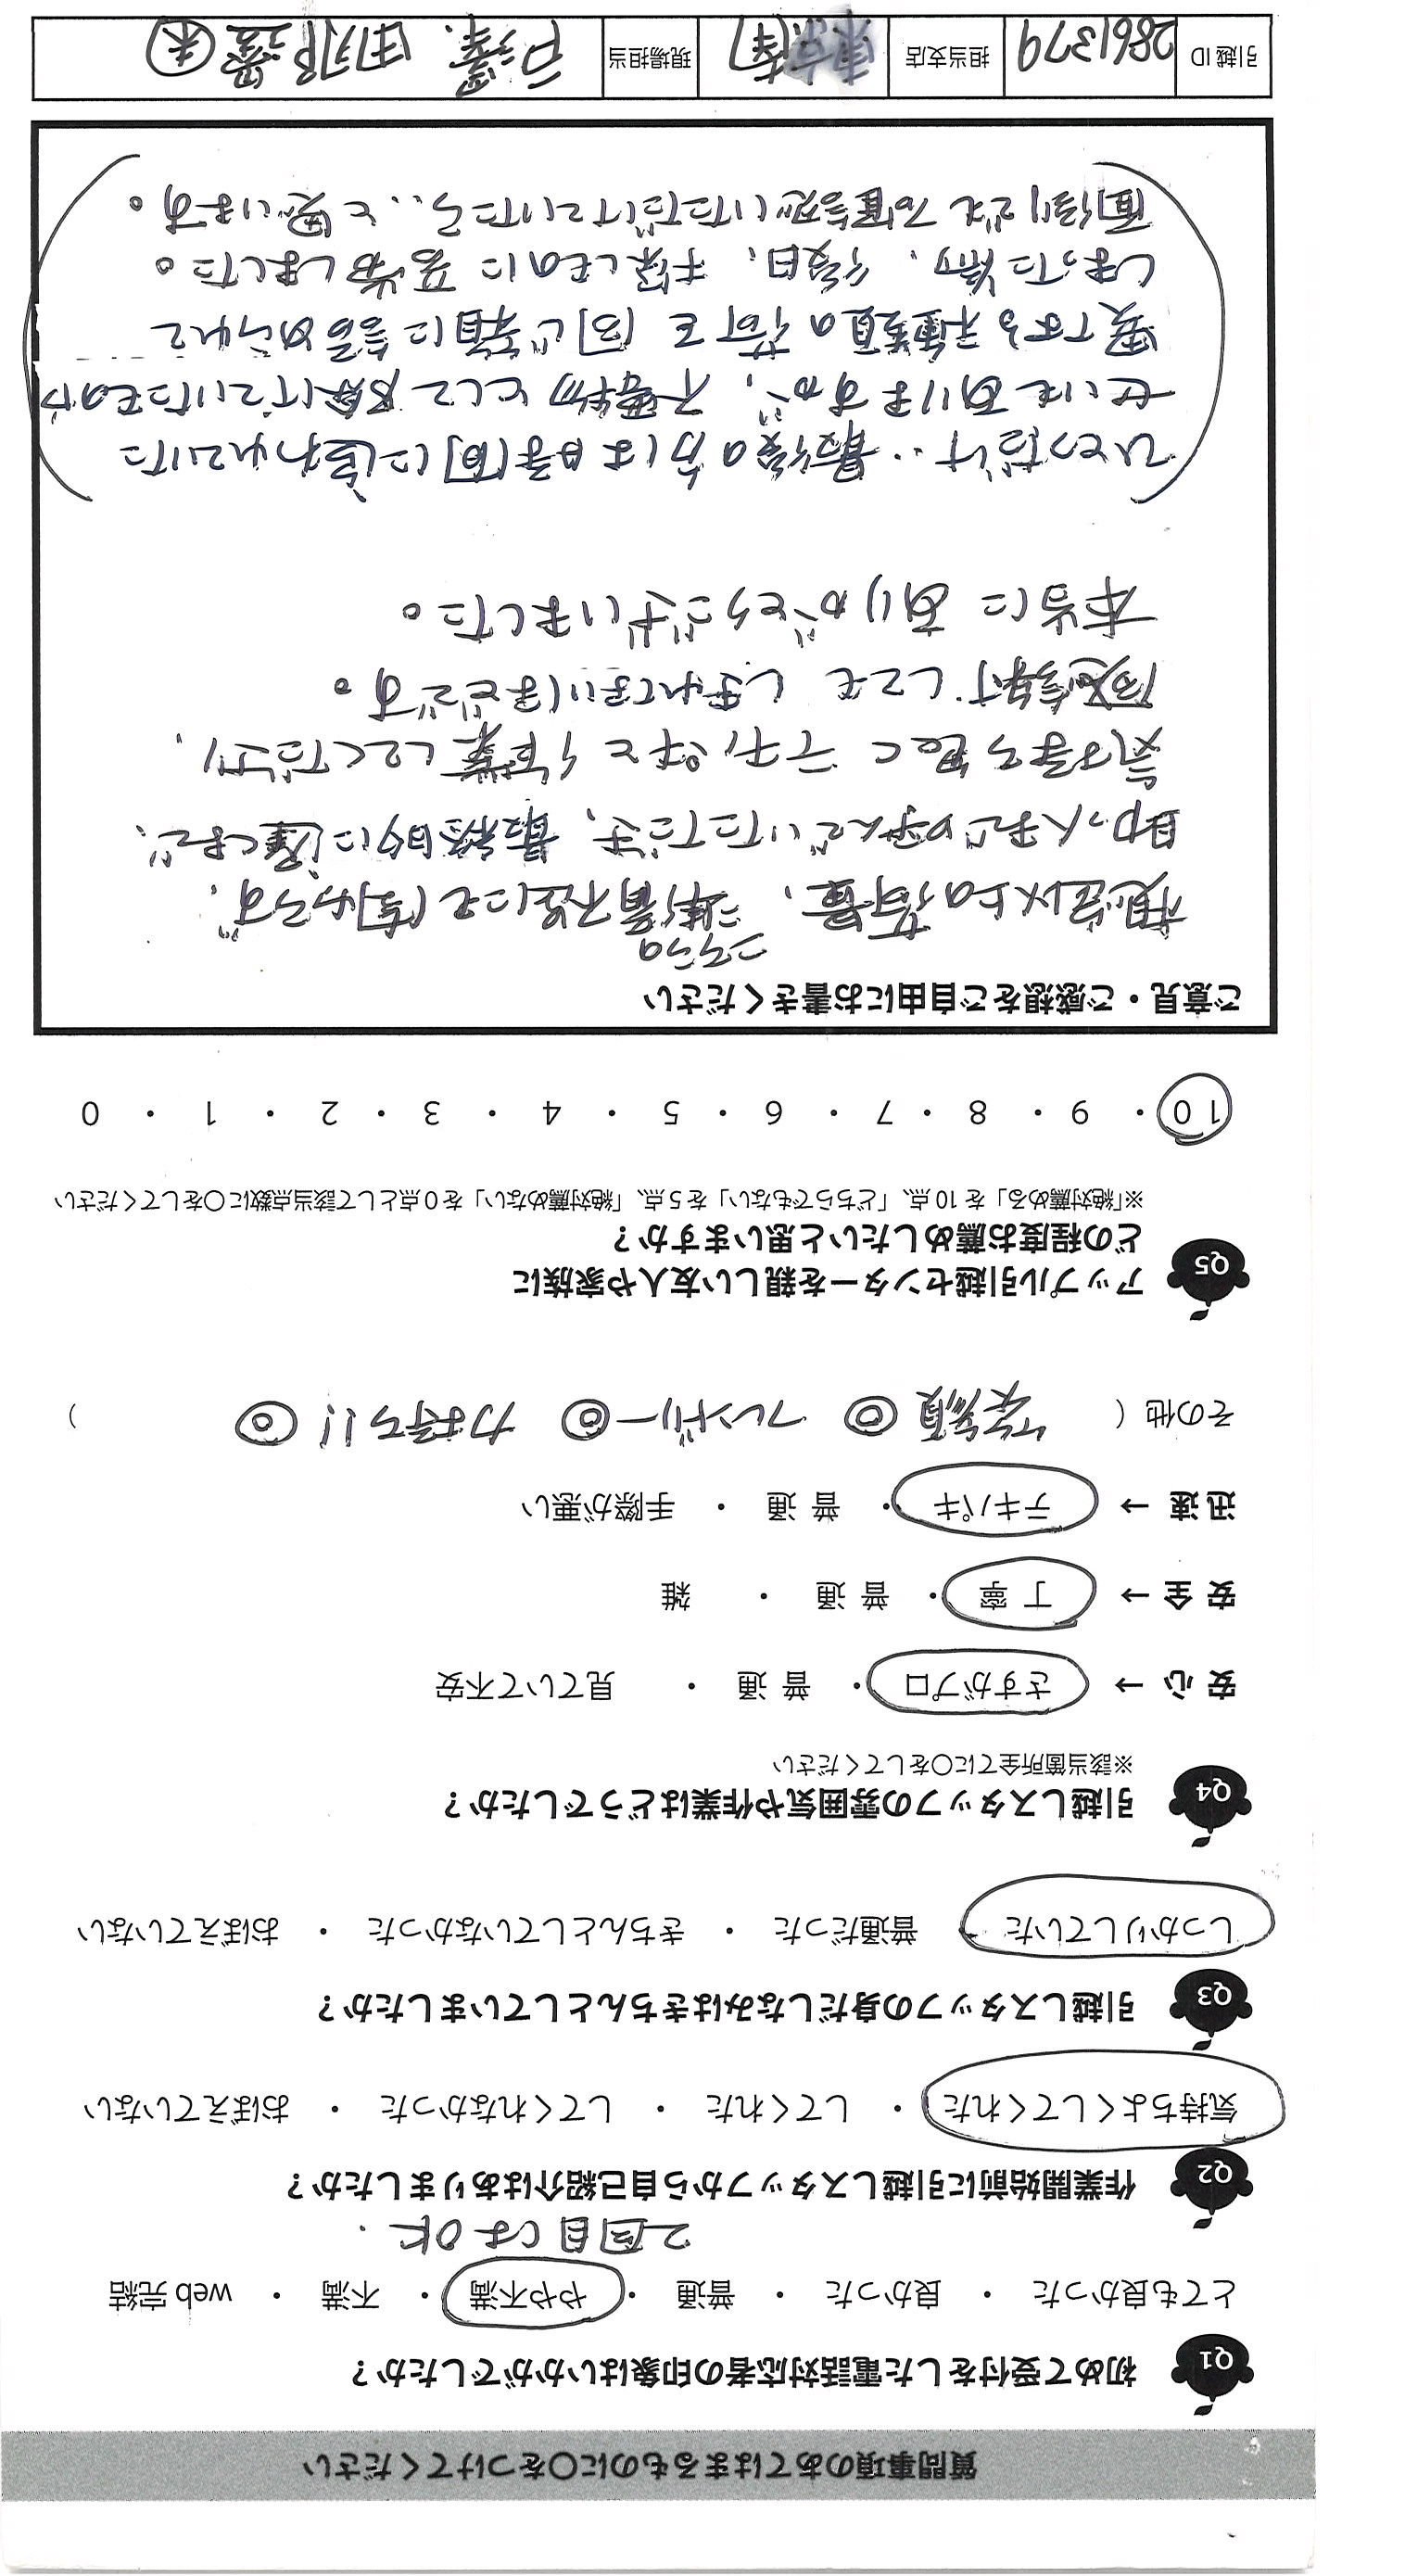 質問事項のあてはまるものに〇をつけてください
Q1 初めて受付をした電話対応者の印象はいかがでしたか？
とても良かった ・ 良かった ・ 普通 ・ やや不満 ・ 不満 ・ web 完結
2回目はOK.
Q2 作業開始前に引越しスタッフから自己紹介はありましたか？
気持ちよくしてくれた ・ してくれた ・ してくれなかった ・ おぼえていない
Q3 引越しスタッフの身だしなみはきちんとしていましたか？
しっかりしていた ・ 普通だった ・ きちんとしていなかった ・ おぼえていない
Q4 引越しスタッフの雰囲気や作業はどうでしたか？
※該当箇所全てに〇をしてください
安 心 → さすがプロ ・ 普 通 ・ 見ていて不安
安 全 → 丁 寧 ・ 普 通 ・ 雑
迅 速 → テキパキ ・ 普 通 ・ 手際が悪い
その他（ 笑顔◎ フレンドリー◎ 力持ち!!◎ ）
Q5 アップル引越センターを親しい友人や家族に
どの程度お薦めしたいと思いますか？
※「絶対薦める」を 10 点、「どちらでもない」を 5 点、「絶対薦めない」を 0 点として該当点数に〇をしてください
10 ・ 9 ・ 8 ・ 7 ・ 6 ・ 5 ・ 4 ・ 3 ・ 2 ・ 1 ・ 0
ご意見・ご感想をご自由にお書きください
こちらの
想定以上の荷量、準備不足にも関わらず、
助っ人まで呼んでいただき、最終的に遅くまで、
気持ち良く テキパキと作業してくださり、
何度感謝しても しきれないほどです。
本当に ありがとうございました。
ひとつだけ‥最後の方は時間に追われていた
せいもありますが、不要物として除けていたものや
異なる種類の荷を 同じ箱に詰められて
しまった為、後日、手探しものに 苦労しました。
面倒でも 確認いただけていたら、と思います。
引越 ID 2861379 担当支店 東京南 現場担当 戸澤、田邊